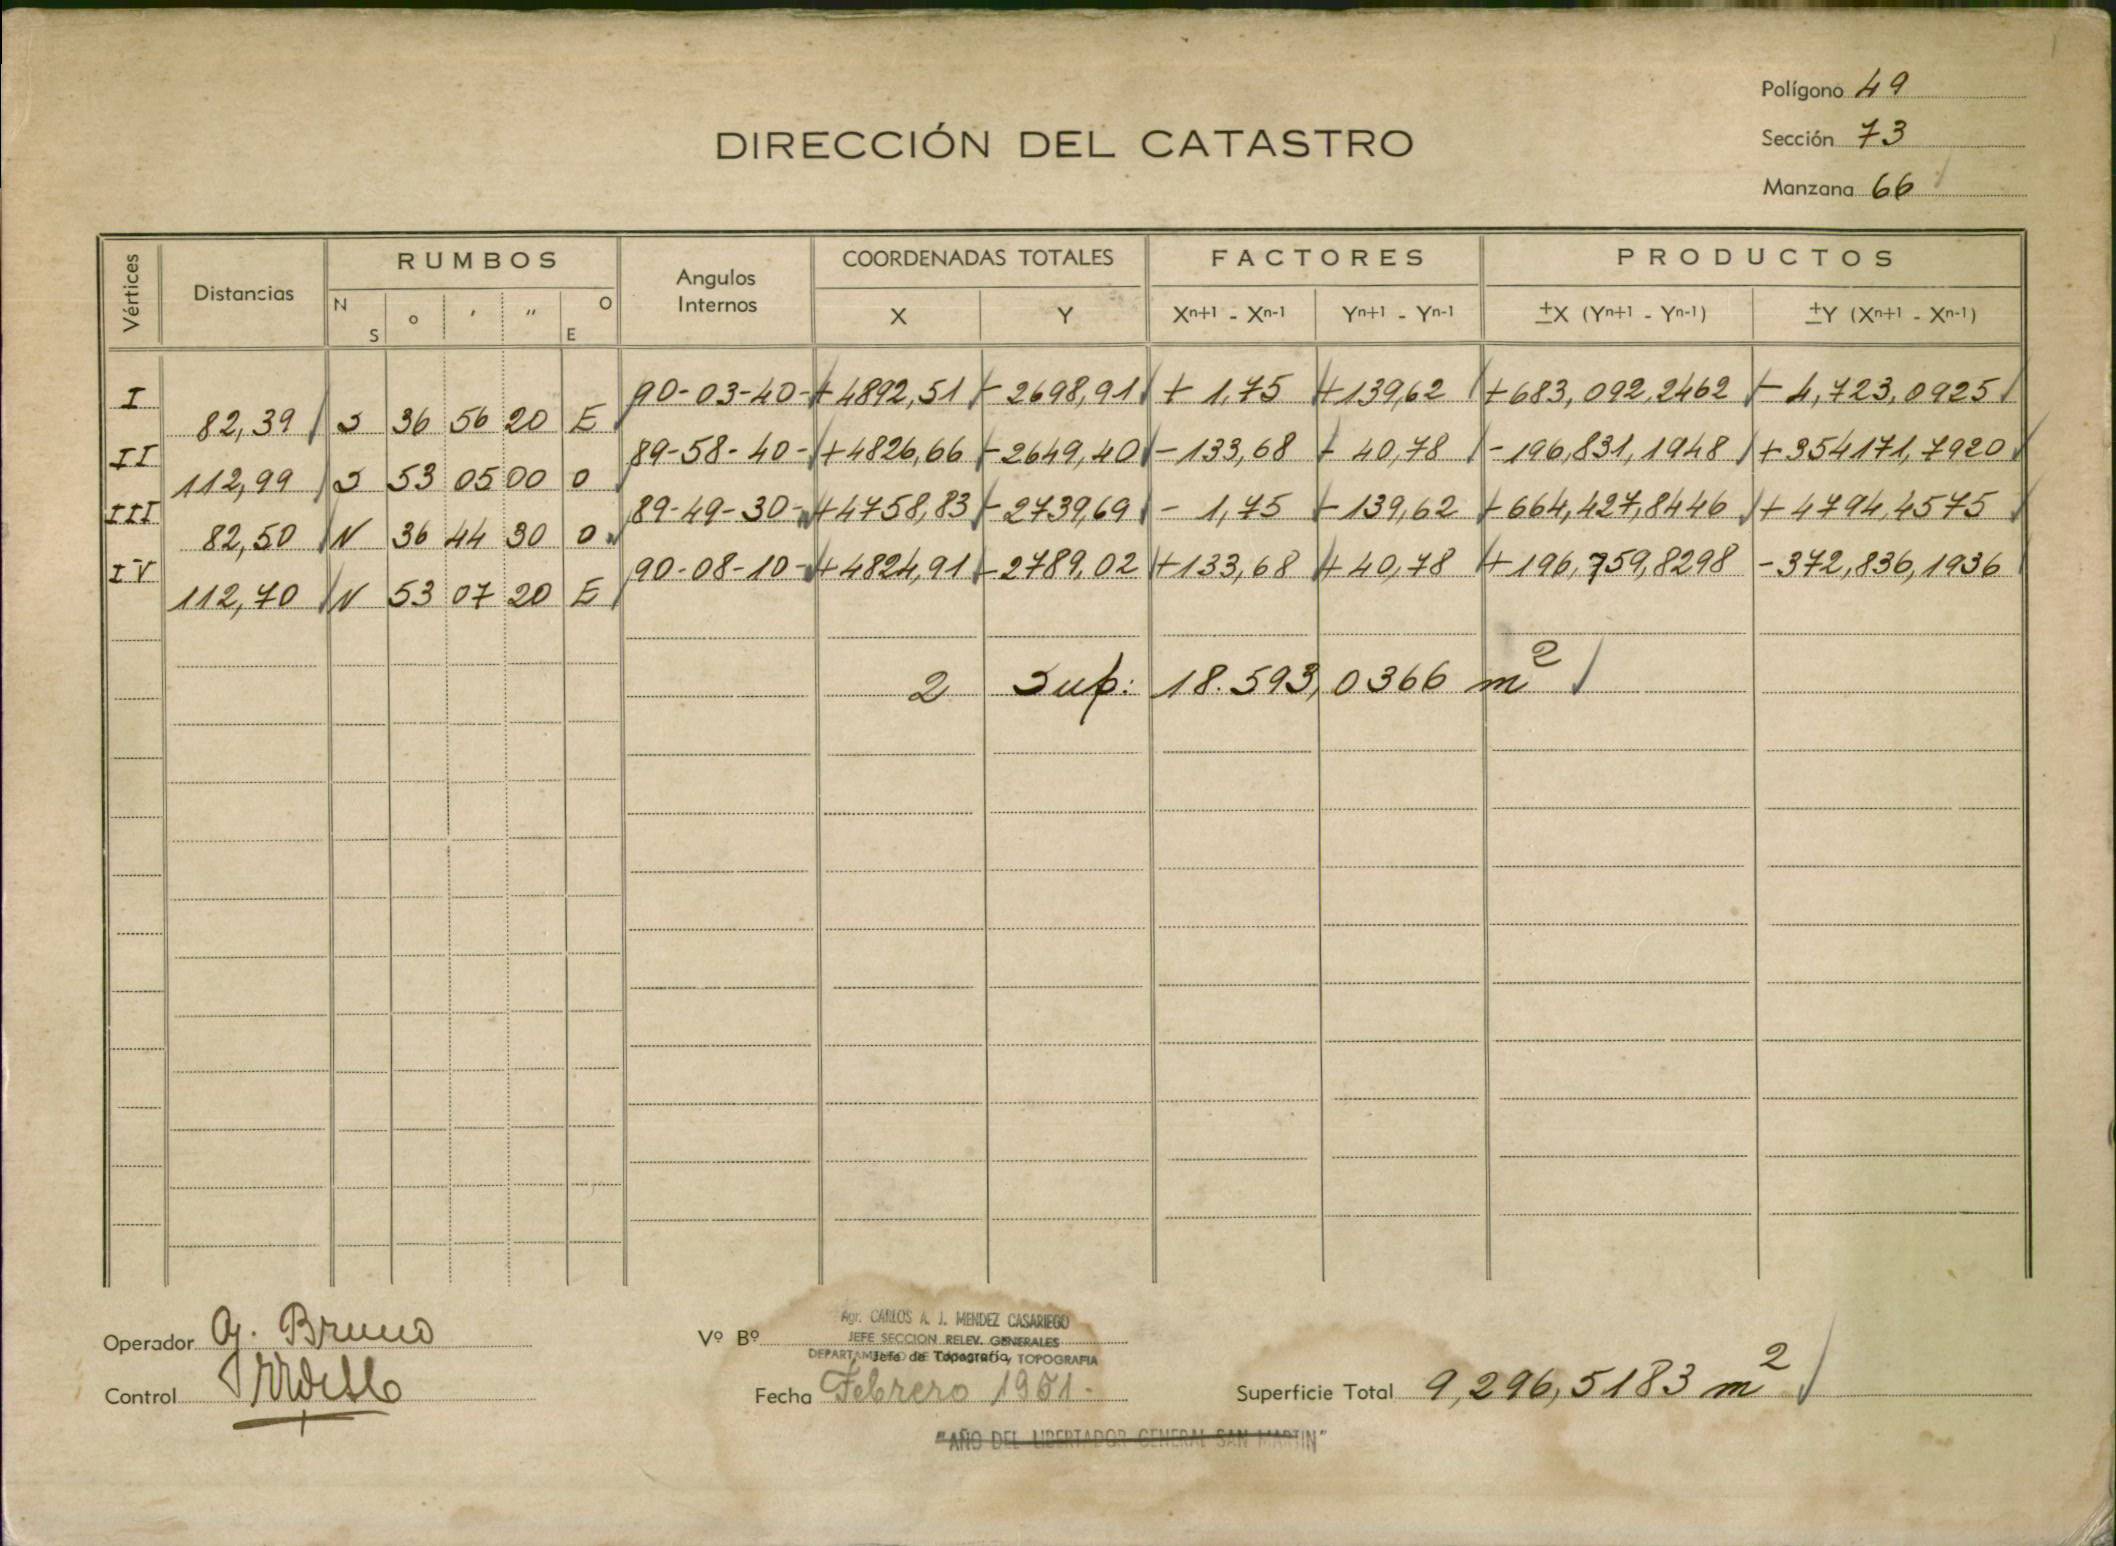 Polígono 49
DIRECCIÓN DEL CATASTRO
Sección 73
Manzana 66
Vértices Distancias RUMBOS Angulos Internos COORDENADAS TOTALES FACTORES PRODUCTOS
N S ° ' " O E X Y Xn+1 - Xn-1 Yn+1 - Yn-1 ±X (Yn+1 - Yn-1) ±Y (Xn+1 - Xn-1)
I 90-03-40- +4892,51 -2698,91 + 1,75 +139,62 +683,092,2462 - 4,723,0925
82,39 S 36 56 20 E
II 89-58-40- +4826,66 -2649,40 -133,68 - 40,78 -196,831,1948 +354171,7920
112,99 S 53 05 00 O
III 89-49-30- +4758,83 -2739,69 - 1,75 -139,62 -664,427,8446 + 4794,4575
82,50 N 36 44 30 O
IV 90-08-10- +4824,91 -2789,02 +133,68 + 40,78 +196,759,8298 -372,836,1936
112,70 N 53 07 20 E
2 Sup: 18.593,0366 m²
Operador G. Bruno
Vº Bº
Agr. CARLOS A. J. MENDEZ CASARIEGO
JEFE SECCION RELEV. GENERALES
DEPARTAMENTO DE CATASTRO y TOPOGRAFIA
Jefe de Topografía
Control
Fecha Febrero 1951.-
Superficie Total 9,296,5183 m²
"AÑO DEL LIBERTADOR GENERAL SAN MARTIN"